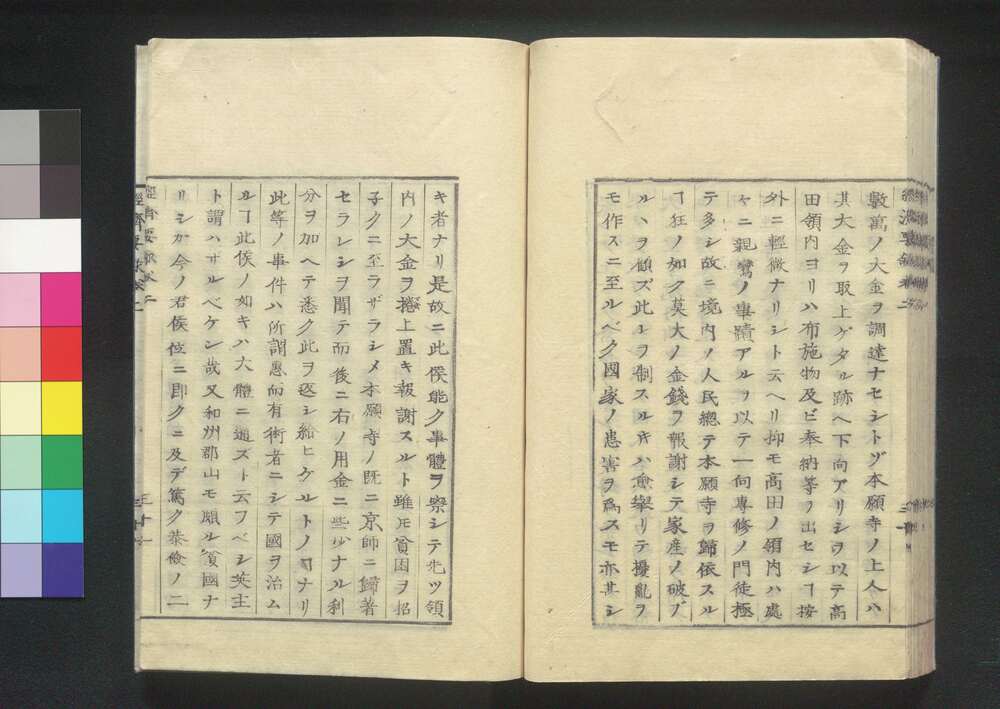 數萬ノ大金ヲ調達ナセシトゾ本願寺ノ上人ハ
其大金ヲ取上ゲタル跡ヘ下向アリシヲ以テ高
田領内ヨリハ布施物及ビ奉納等ノ出セシヿ按
外ニ輕微ナリシト云ヘリ抑モ高田ノ領内ハ處
ャニ親鸞ノ事蹟アルヲ以テ一向專修ノ門徒極
テ多シ故ニ境内ノ人民總テ本願寺ヲ歸依スル
ヿ狂ノ如ク莫大ノ金錢ヲ報謝シテ家産ノ破ブ
ルヽヲ顧ズ此レヲ制スル片ハ愈擧リテ擾亂ヲ
モ作スニ至ルベク國家ノ患害ヲ爲スモ亦甚シ
キ者ナリ是故ニ此侯能ク事體ヲ察シテ先ツ領
内ノ大金ヲ捲上置キ報謝スルト雖ㇺ貧困ヲ招
子クニ至ラザラシメ本願寺ノ既ニ京師ニ歸著
セラレシヲ聞テ而後ニ右ノ用金ニ些少ナル利
分ヲ加ヘテ悉ク此ヲ返シ給ヒケルトノヿナリ
此等ノ事件ハ所謂惠而有術者ニシテ國ヲ治ム
ルヿ此侯ノ如キハ大體ニ通ズト云フベシ英主
ト謂ハザルベケン哉又和州郡山モ頗ル貧國ナ
リシガ今ノ君侯位ニ即クニ及デ篤ク恭儉ノ二